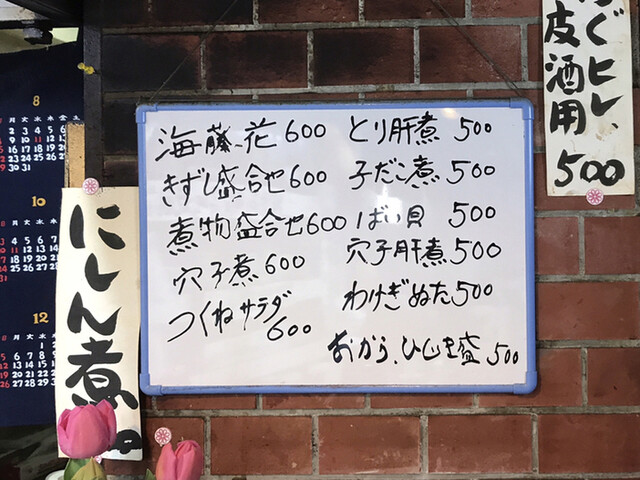 海藤花 600
きずし盛合せ 600
煮物盛合せ 600
穴子煮 600
つくねサラダ
600
とり肝煮 500
子だこ煮 500
ばい貝 500
穴子肝煮 500
わけぎぬた 500
おから、ひじき盛 500
ふぐヒレ、
皮酒用
500
にしん煮
8
月 火 水 木 金 土
10
12